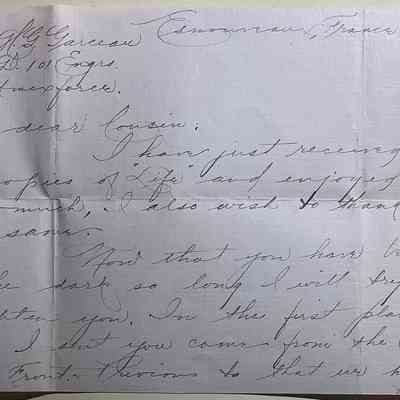 H. G. Garceau France
D. 101 Engrs.
Amexforce.
dear Cousin:
I have just received
copies of "Life" and enjoyed
much, I also wish to thank
same.
Now that you have be
he dark so long I will try
hten you. In the first pla
I sent you came from the
Front. Previous to that we h